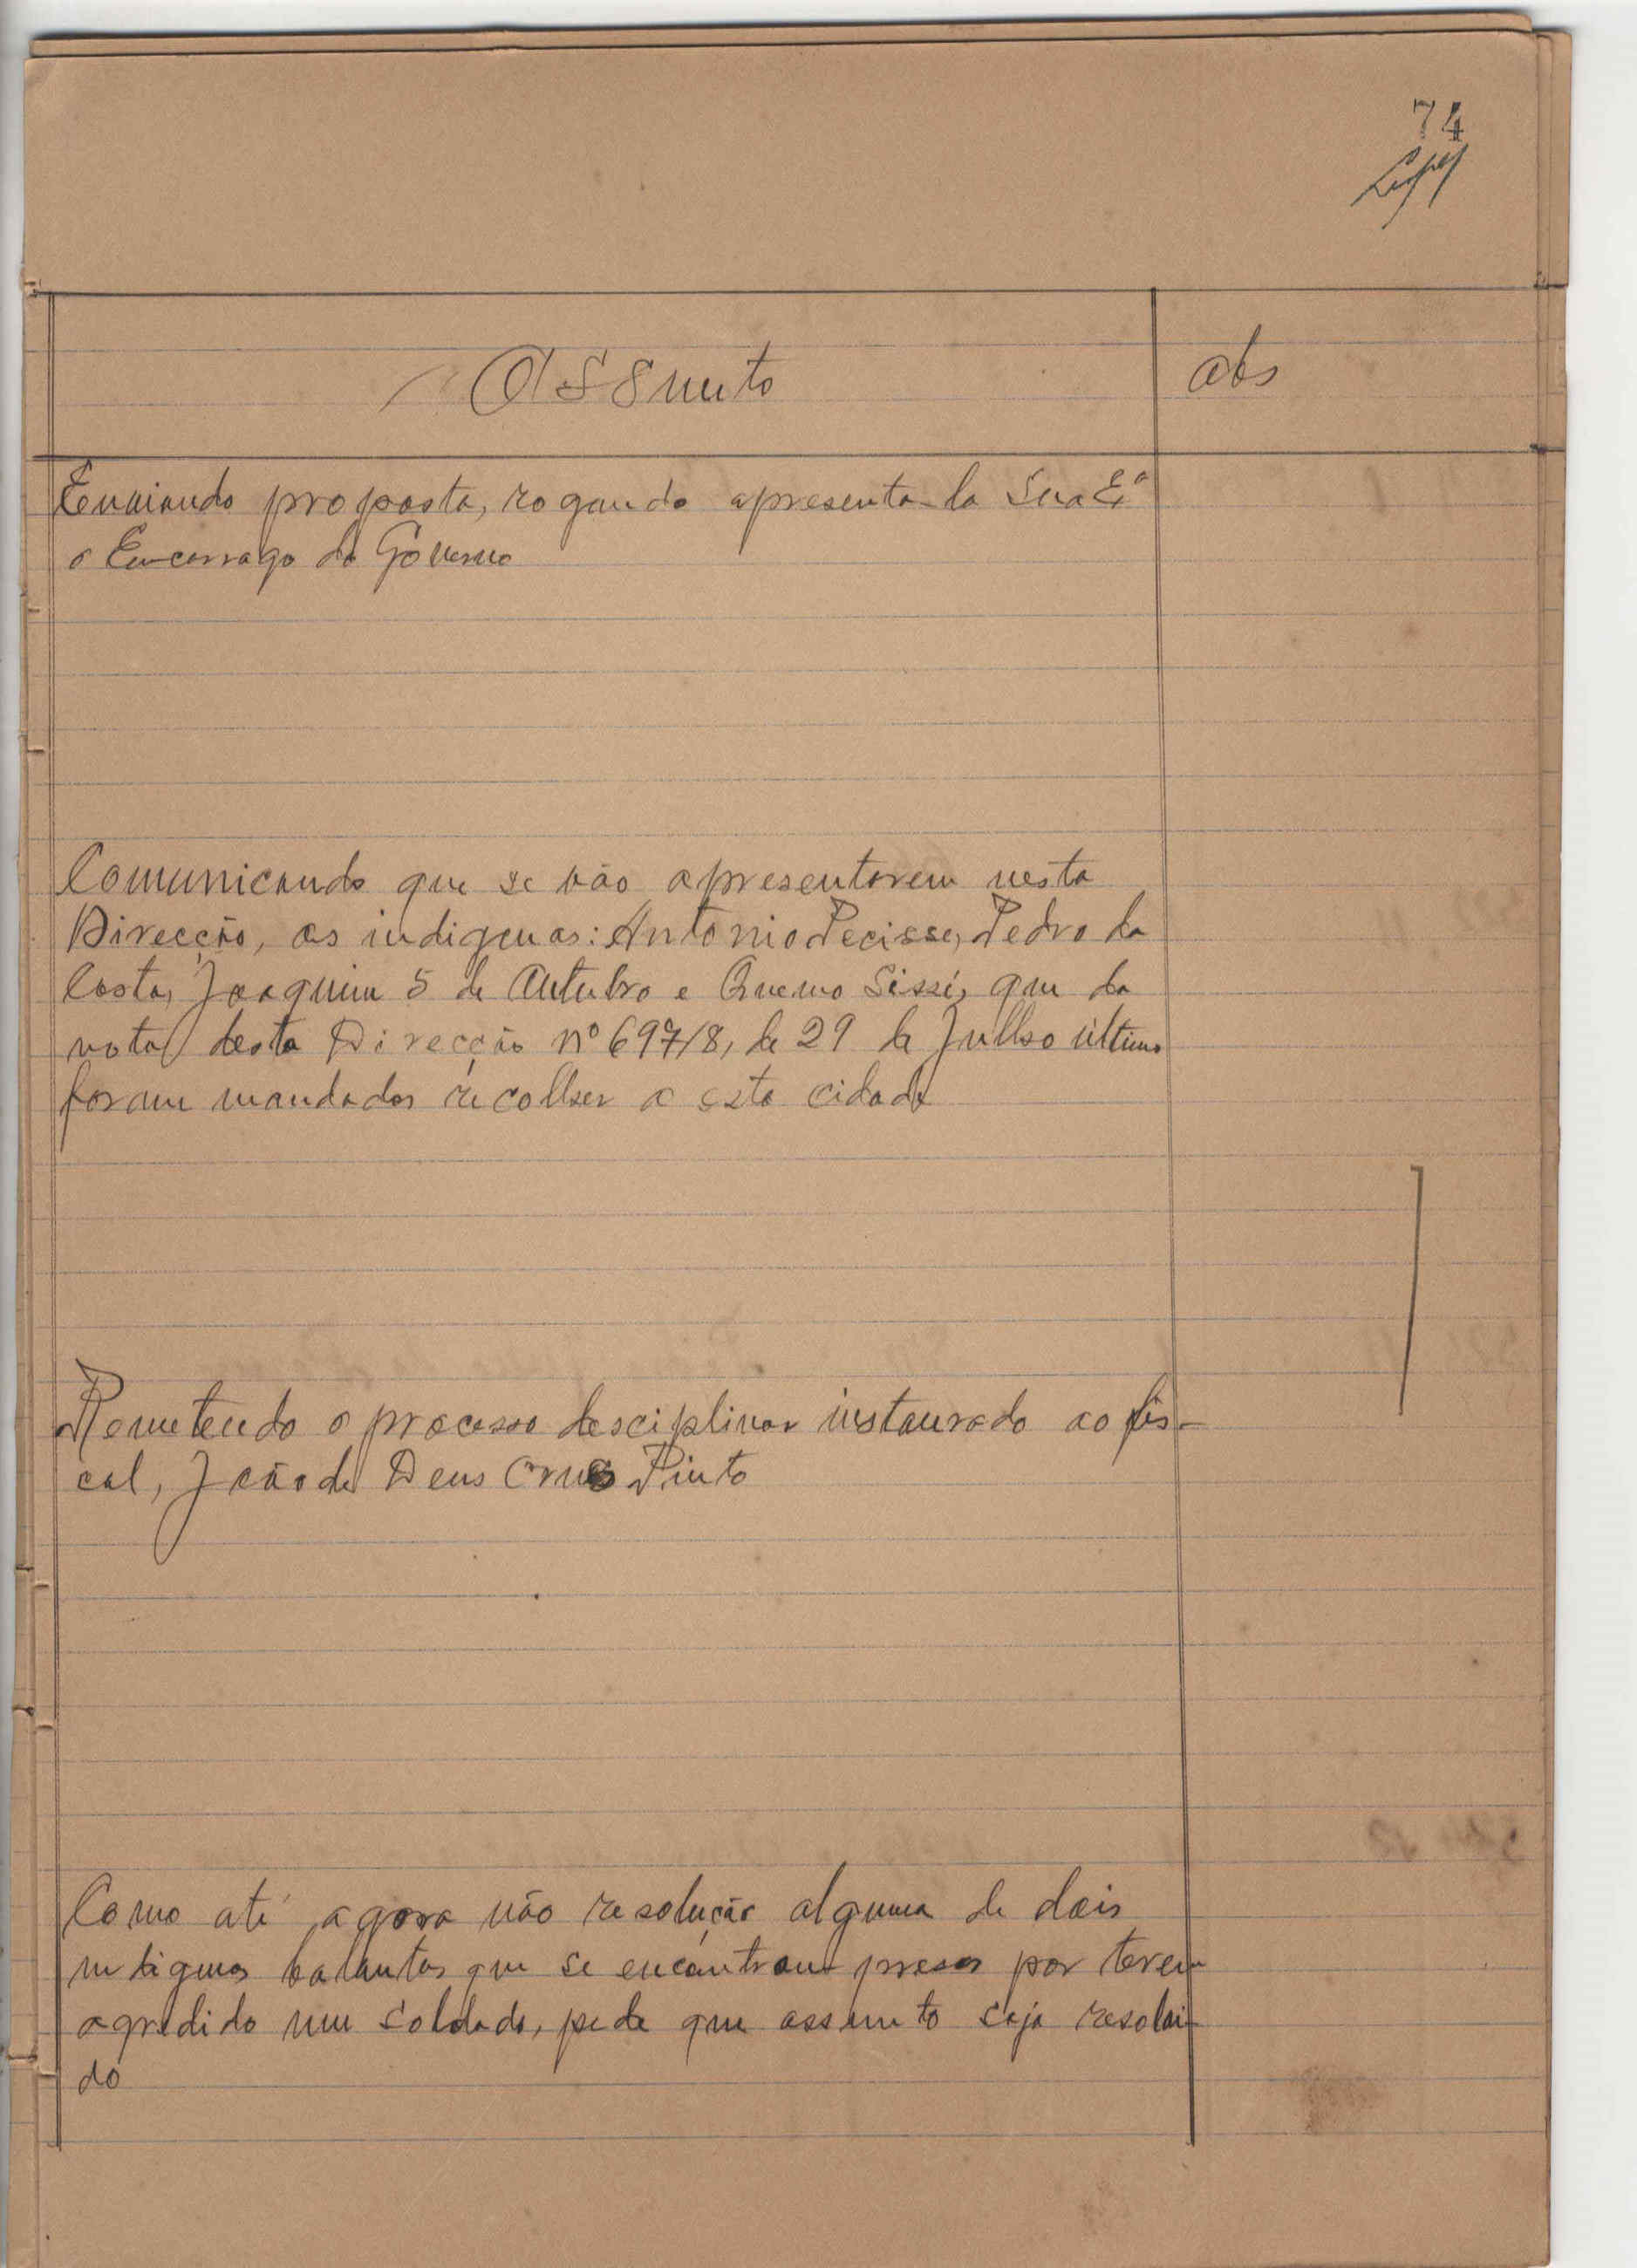 74
Assunto
obs
Enviando proposta, rogando apresenta-la Sua Eª
o Encarrago do Governo
Comunicando que se vão apresentarem nesta
Direcção, os indigenas: Antonio Pecisse, Pedro da
Costa, Joaquim 5 de Outubro e Quemo Sissé, que da
nota desta Direcção nº 697/8, de 29 de Julho último
foram mandados recolher a esta cidade
Remetendo o processo desciplinar instaurado ao fis-
cal, João de Deus Crus Pinto
Como até agora não resolução alguma de dois
indigenas balantas que se encontram presos por terem
agredido um soldado, pede que assunto seja resolvi-
do